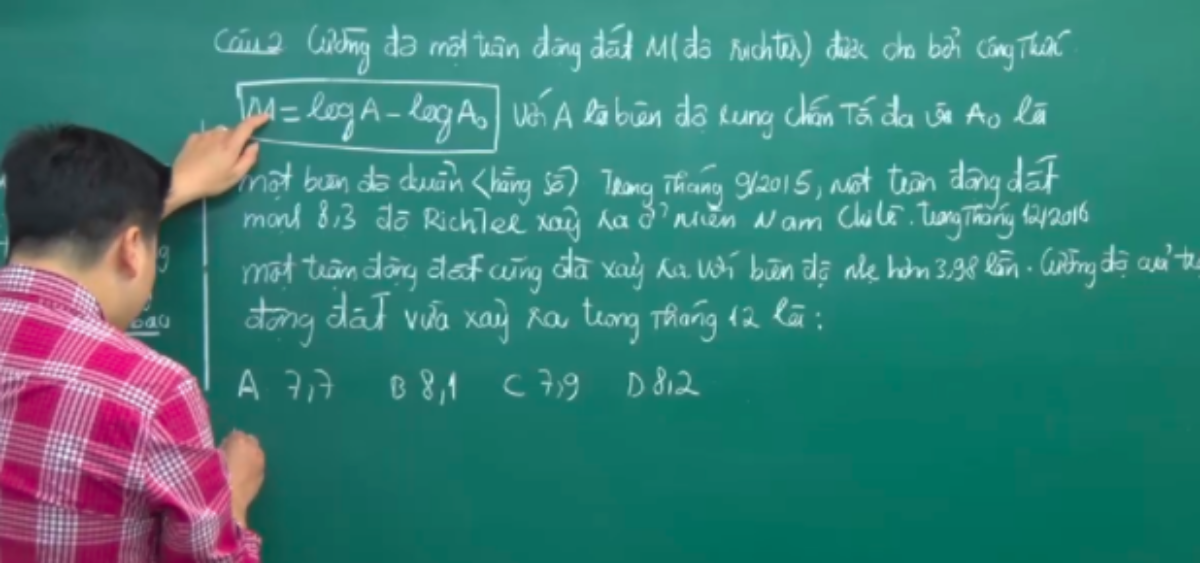 Câu 2 Cường độ một trận động đất M (độ Richter) được cho bởi công thức
M = log A - log A₀ với A là biên độ rung chấn tối đa và A₀ là
một biên độ chuẩn (hằng số) Trong tháng 9/2015, một trận động đất
mạnh 8,3 độ Richter xảy ra ở miền Nam Chi lê. Trong tháng 12/2016
một trận động đất cũng đã xảy ra với biên độ nhẹ hơn 3,98 lần. Cường độ của
động đất vừa xảy ra trong tháng 12 là:
A 7,7 B 8,1 C 7,9 D 8,2